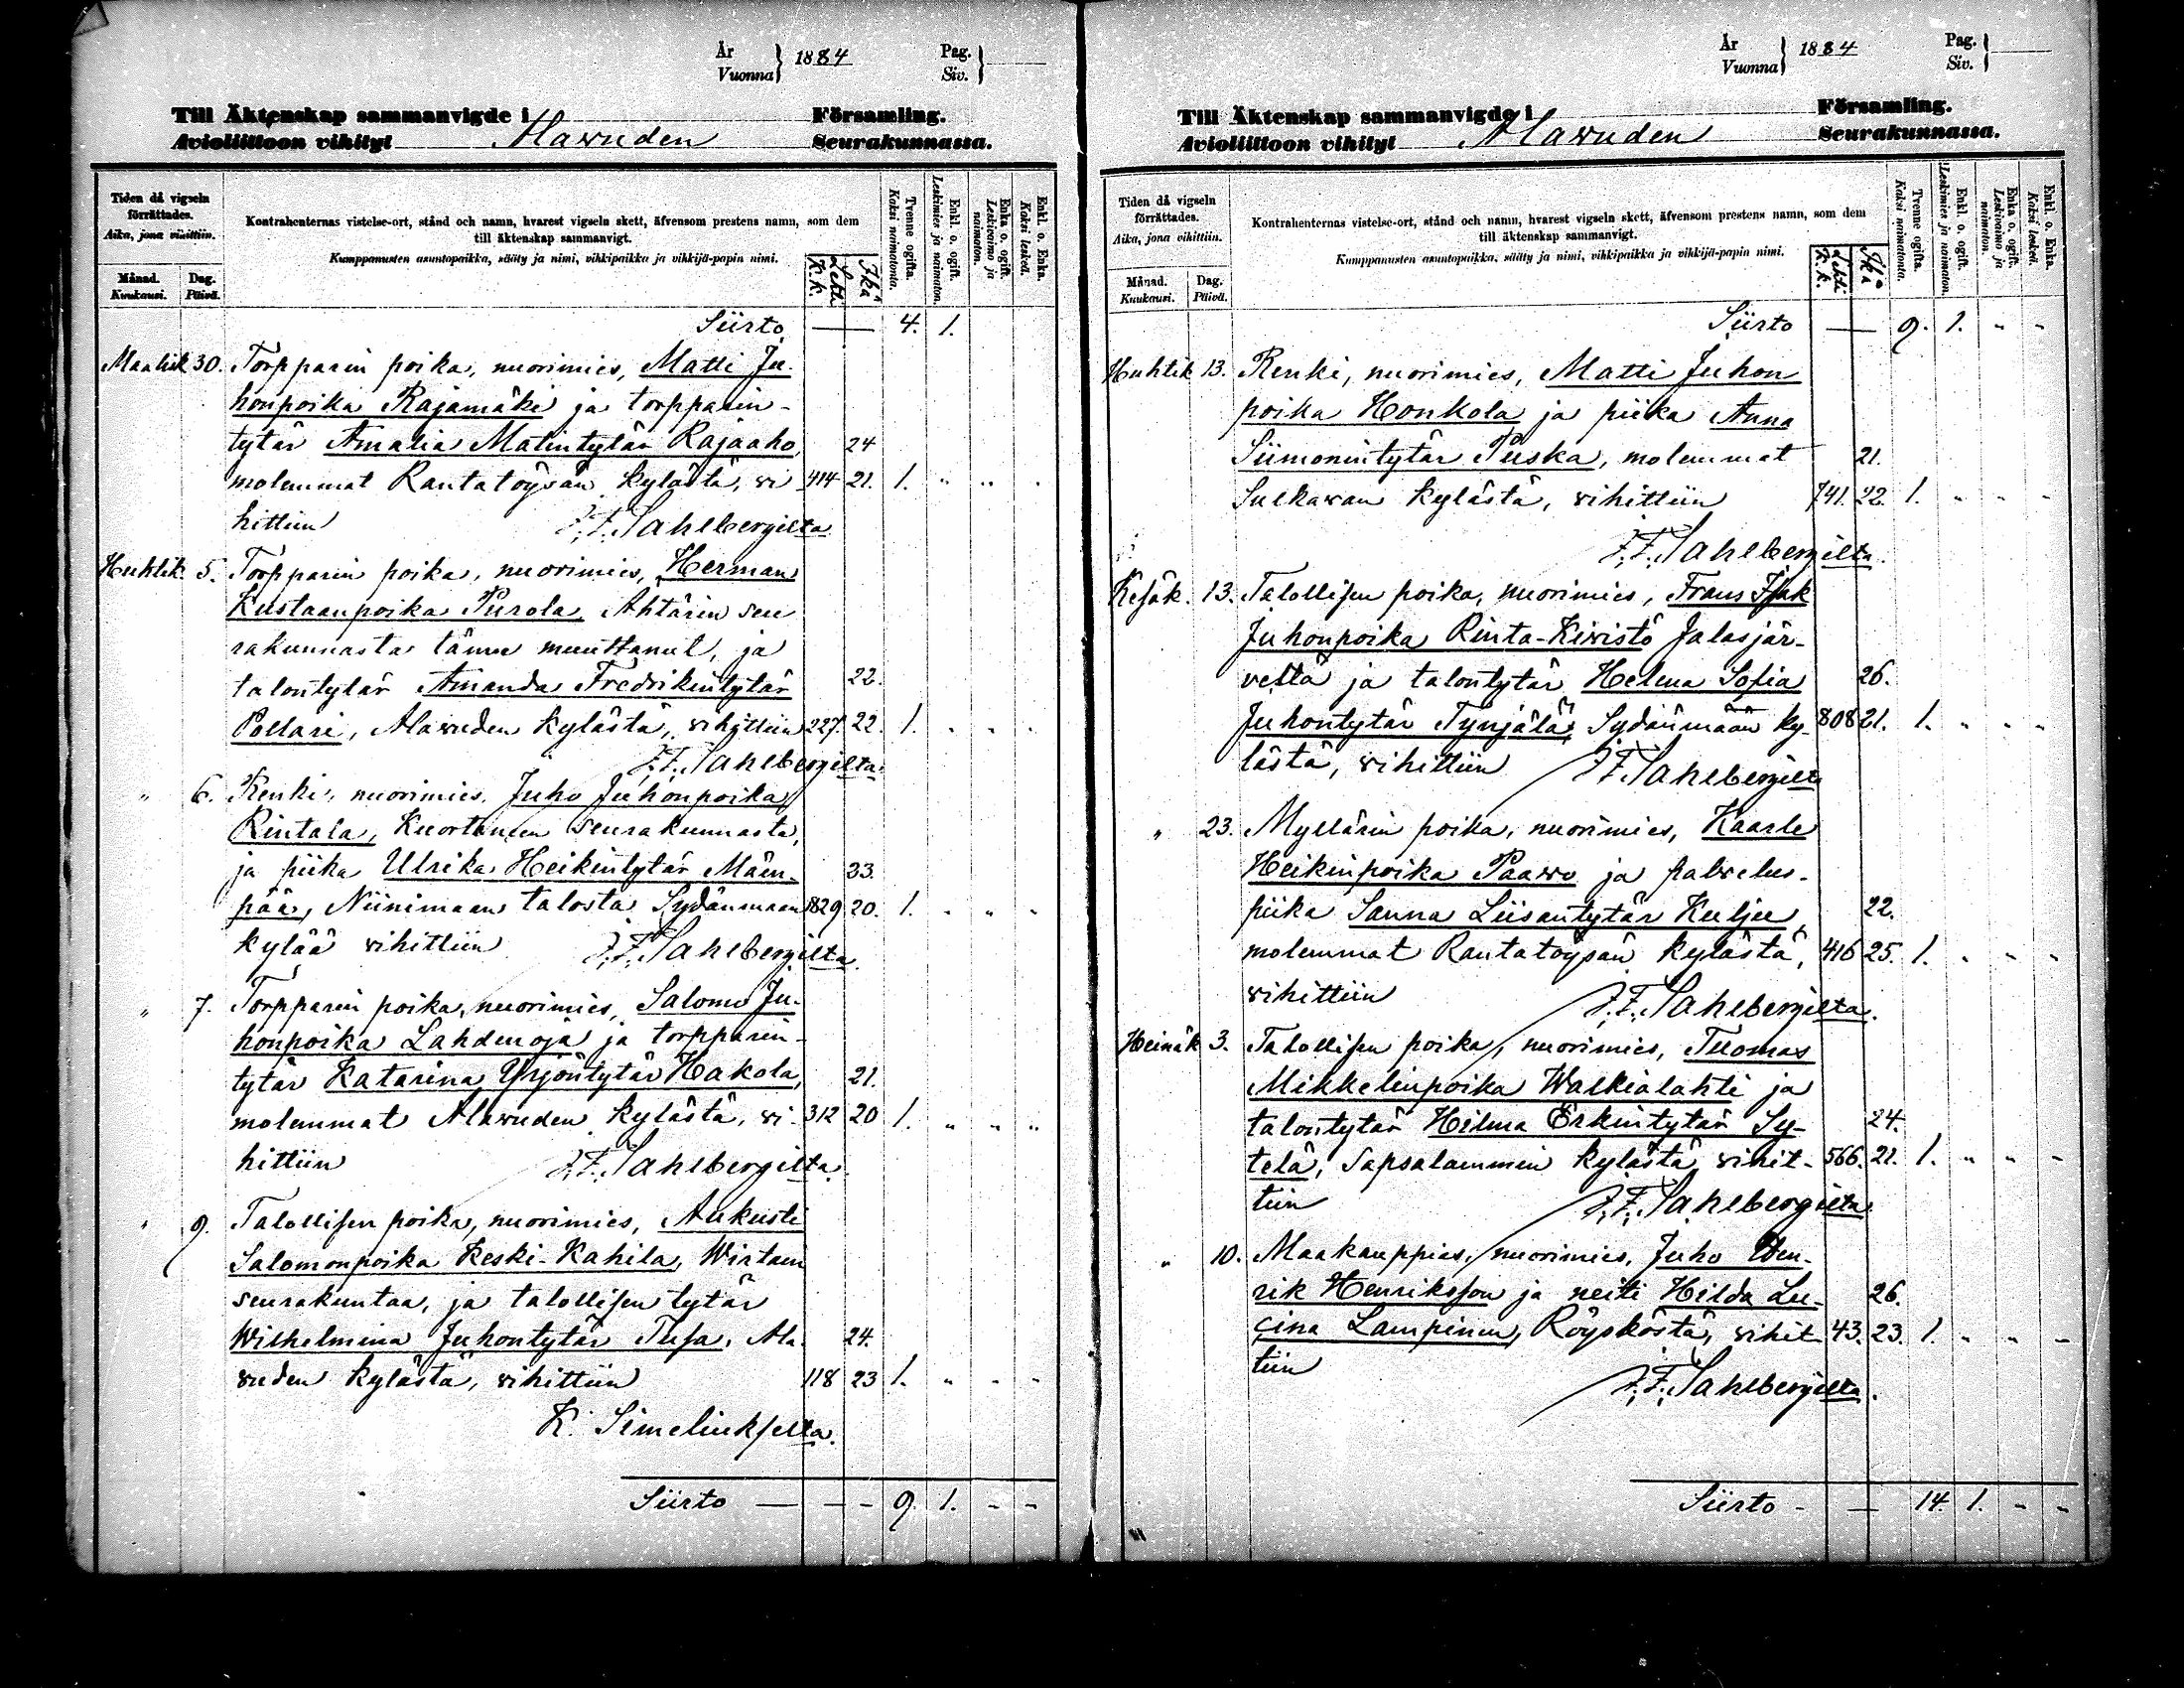 År
Vuonna } 1884 Pag.
Siv. }
Till Äktenskap sammanvigde i Församling.
Avioliittoon vihityt Alavuden Seurakunnassa.
Tiden då vigseln förrättades.
Aika, jona vihittiin.
Månad.
Kuukausi.
Dag.
Päivä.
Kontrahenternas vistelse-ort, stånd och namn, hvarest vigseln skett, äfvensom prestens namn, som dem
till äktenskap sammanvigt.
Kumppanusten asuntopaikka, sääty ja nimi, vihkipaikka ja vihkijä-papin nimi.
K.k. Lehti Ikä
Tvenne ogifta.
Kaksi naimatonta.
Enkl. o. ogift.
Leskimies ja naimaton.
Enka o. ogift.
Leskivaimo ja naimaton.
Enkl. o. Enka.
Kaksi leskeä.
Siirto — 4. 1.
Maalisk 30. Torpparin poika, nuorimies, Matti Ju-
honpoika Rajamäki ja torpparin-
tytär Amalia Matintytär Rajaaho, 24
molemmat Rantatöysän kylästä, vi- 414 21. 1. " " "
hittiin J.F. Sahlbergilta
Huhtik. 5. Torpparin poika, nuorimies, Herman
Kustaanpoika Purola, Ahtärin seu
rakunnasta tänne muuttanut, ja
talontytär Amanda Fredrikintytär 22.
Pollari, Alavuden kylästä, vihittiin 227. 22. 1. " " "
J.F. Sahlbergilta
" 6. Renki, nuorimies, Juho Juhonpoika
Rintala, Kuortaneen seurakunnasta,
ja piika Ulrika Heikintytär Mäen- 23.
pää, Niinimaan talosta Sydänmaan 829 20. 1. " " "
kylää vihittiin J.F. Sahlbergilta
" 7. Torpparin poika, nuorimies, Salomo Ju-
honpoika Lahdenoja ja torpparin-
tytär Katarina Yrjöntytär Hakola, 21.
molemmat Alavuden kylästä, vi- 312 20 1. " " "
hittiin J.F. Sahlbergilta.
" 9. Talollisen poika, nuorimies, Aukusti
Salomonpoika Keski-Kahila, Wirtain
seurakuntaa, ja talollisen tytär
Wilhelmina Juhontytär Tusa, Ala- 24.
vuden kylästä, vihittiin 118 23 1. " " "
K. Simelinkselta.
Siirto — - - 9. 1. - -
År
Vuonna } 1884 Pag.
Siv. }
Till Äktenskap sammanvigde i Församling.
Avioliittoon vihityt Alavuden Seurakunnassa.
Tiden då vigseln förrättades.
Aika, jona vihittiin.
Månad.
Kuukausi.
Dag.
Päivä.
Kontrahenternas vistelse-ort, stånd och namn, hvarest vigseln skett, äfvensom prestens namn, som dem
till äktenskap sammanvigt.
Kumppanusten asuntopaikka, sääty ja nimi, vihkipaikka ja vihkijä-papin nimi.
K.k. Lehti Ikä
Tvenne ogifta.
Kaksi naimatonta.
Enkl. o. ogift.
Leskimies ja naimaton.
Enka o. ogift.
Leskivaimo ja naimaton.
Enkl. o. Enka.
Kaksi leskeä.
Siirto — 9. 1. - -
Huhtik 13. Renki, nuorimies, Matti Juhon
poika Honkola ja piika Anna
Siimonintytär Puska, molemmat 21.
Sulkavan kylästä, vihittiin 741. 22. 1. " " "
J.F. Sahlbergilta.
Kesäk. 13. Talollisen poika, nuorimies, Frans Isak
Juhonpoika Rinta-Kivistö Jalasjär-
veltä ja talontytär Helena Sofia 26.
Juhontytär Tynjälä, Sydänmään ky- 808 21. 1. " " "
lästä, vihittiin J.F. Sahlbergilta
" 23. Myllärin poika, nuorimies, Kaarle
Heikinpoika Paavo ja palvelus-
piika Sanna Liisantytär Kulju, 22.
molemmat Rantatöysän kylästä, 416 25. 1. " " "
vihittiin J.F. Sahlbergilta.
Heinäk 3. Talollisen poika, nuorimies, Tuomas
Mikkelinpoika Walkialahti ja
talontytär Hilma Erkintytär Sy- 24.
telä, Sapsalammin kylästä, vihit- 566. 21. 1. " " "
tiin J.F. Sahlbergilta.
" 10. Maakauppias, nuorimies, Juho Hen-
rik Henriksson ja neiti Hilda Lu- 26.
cina Lampinen, Röysköstä, vihit- 43. 23. 1. " " "
tiin J.F. Sahlbergilta.
Siirto - — 14. 1. - -